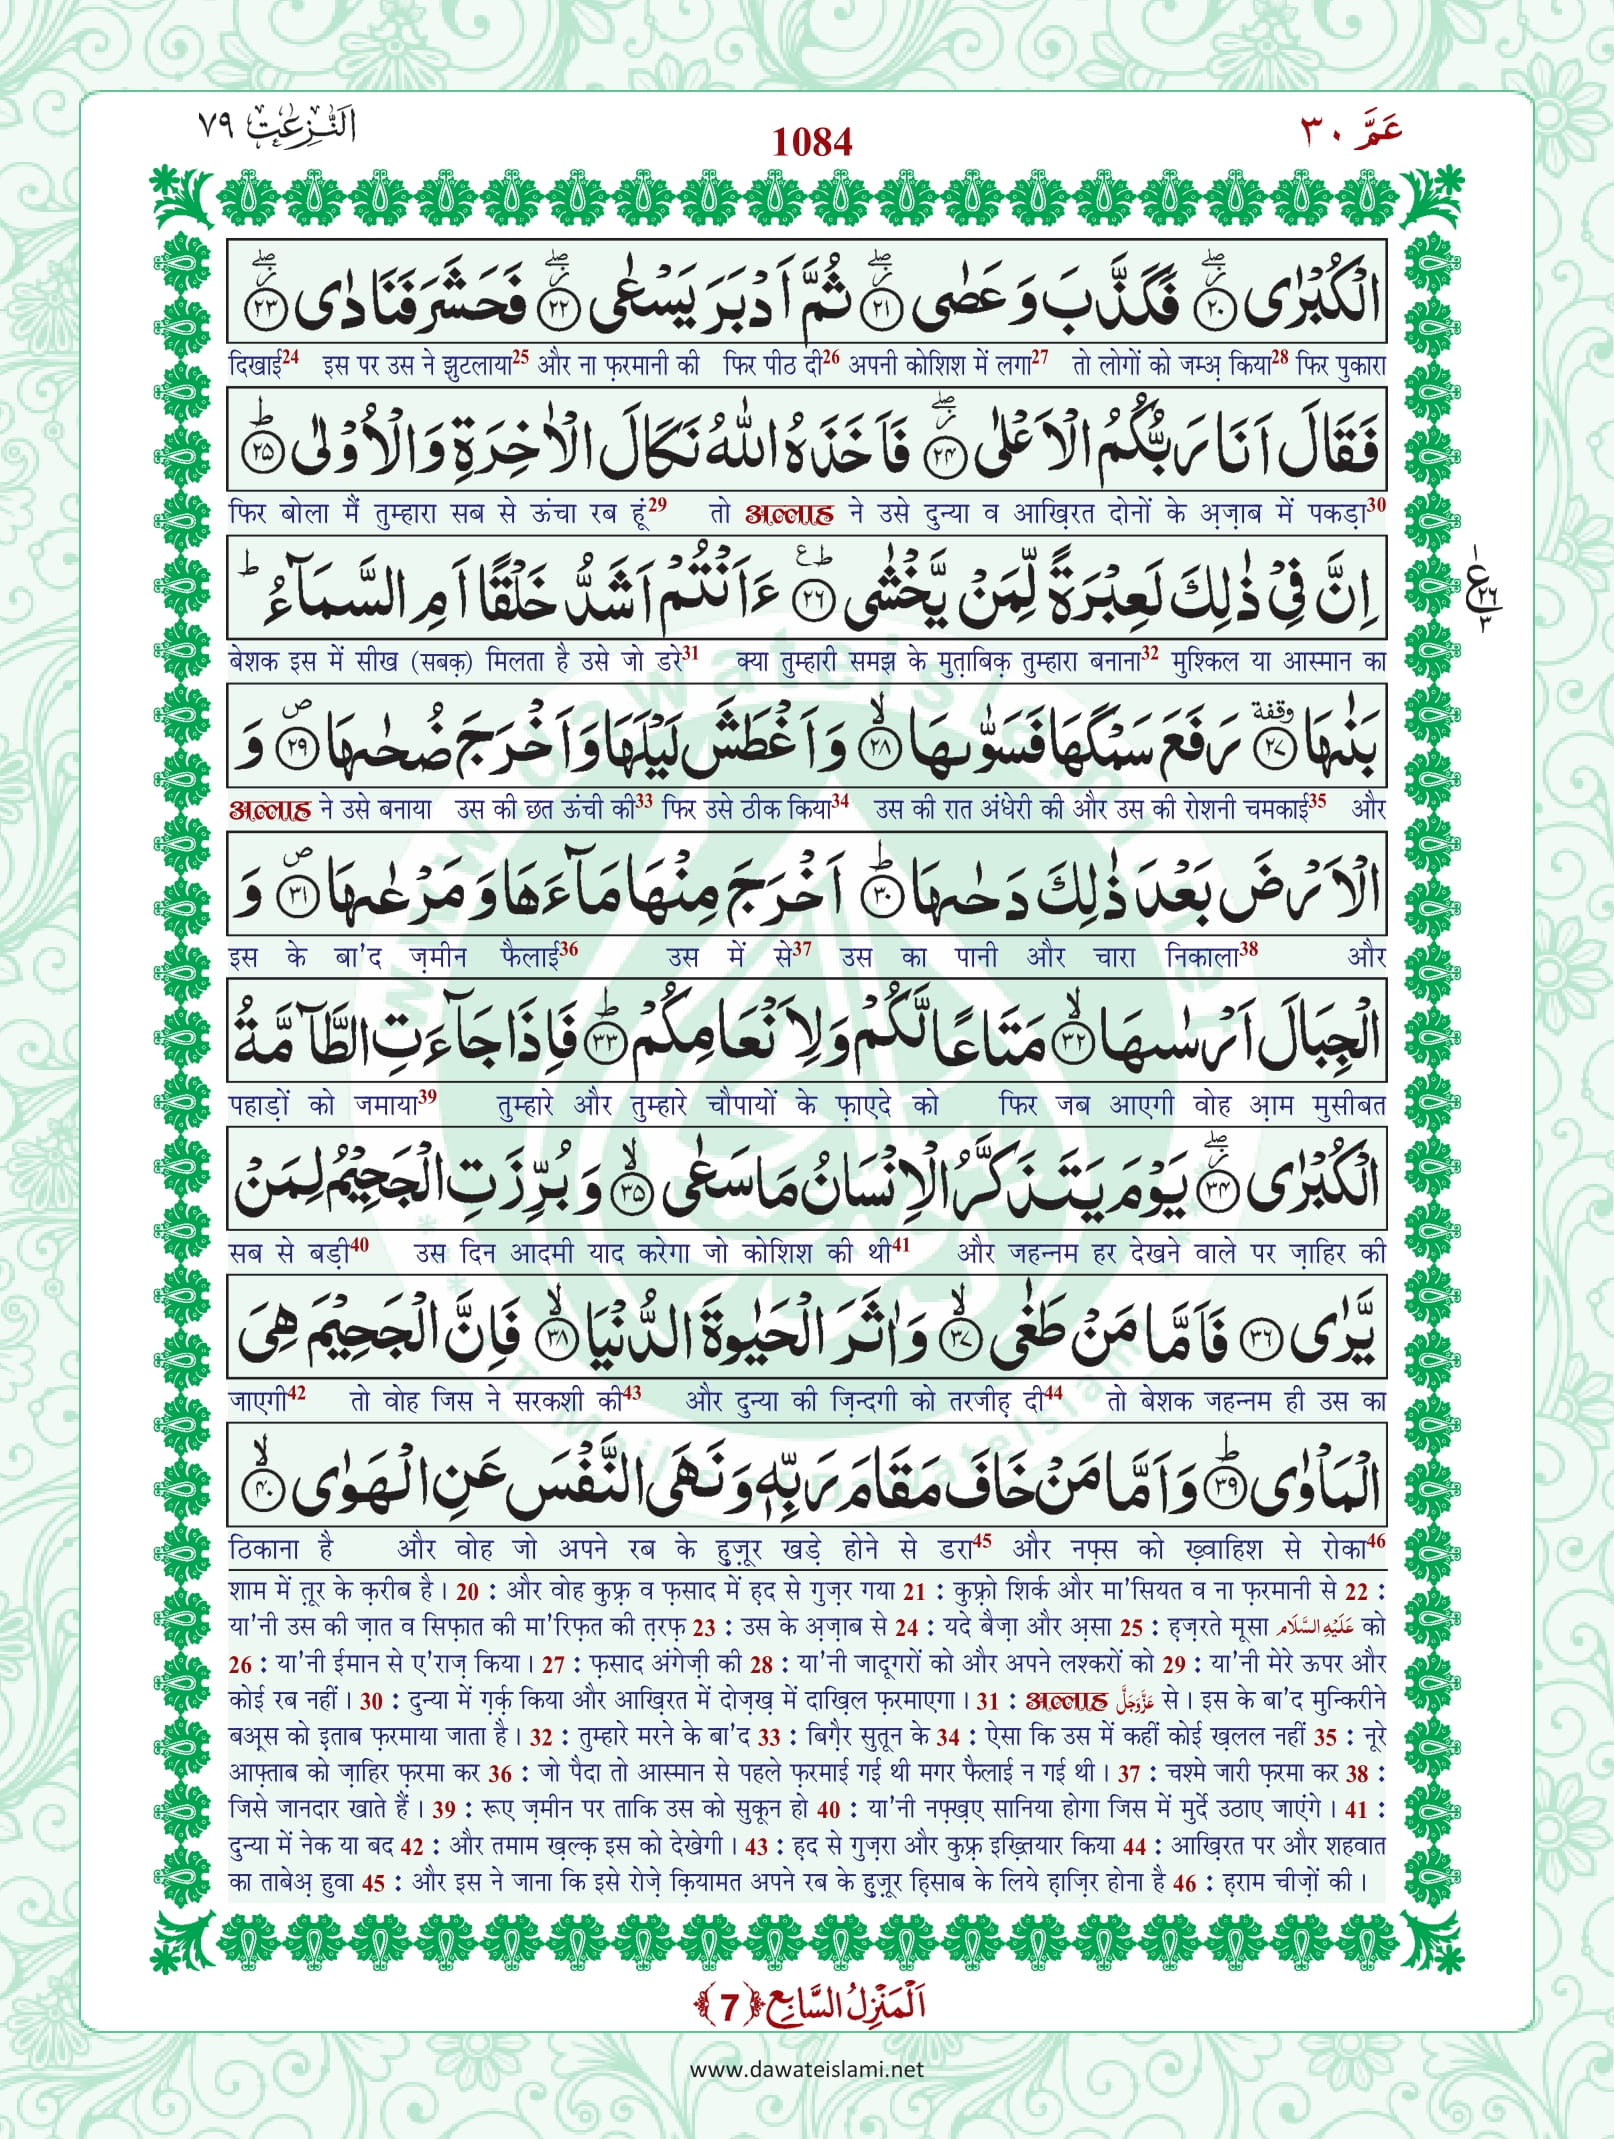 اَلنّٰزِعٰت ٧٩
1084
عَمَّ ٣٠
الْكُبْرٰى ۖ﴿۲۰﴾ فَكَذَّبَ وَ عَصٰى ۖ﴿۲۱﴾ ثُمَّ اَدْبَرَ یَسْعٰى ۖ﴿۲۲﴾ فَحَشَرَ فَنَادٰى ۖ﴿۲۳﴾
दिखाई24 इस पर उस ने झुटलाया25 और ना फ़रमानी की फिर पीठ दी26 अपनी कोशिश में लगा27 तो लोगों को जम्अ़ किया28 फिर पुकारा
فَقَالَ اَنَا رَبُّكُمُ الْاَعْلٰى ۖ﴿۲۴﴾ فَاَخَذَهُ اللّٰهُ نَكَالَ الْاٰخِرَةِ وَ الْاُوْلٰى ؕ﴿۲۵﴾
फिर बोला मैं तुम्हारा सब से ऊंचा रब हूं29 तो अल्लाह ने उसे दुन्या व आख़िरत दोनों के अ़ज़ाब में पकड़ा30
اِنَّ فِیْ ذٰلِكَ لَعِبْرَةً لِّمَنْ یَّخْشٰى ؕ۠﴿۲۶﴾ ءَاَنْتُمْ اَشَدُّ خَلْقًا اَمِ السَّمَآءُ ؕ
ع ٢٦ ٣
बेशक इस में सीख (सबक़) मिलता है उसे जो डरे31 क्या तुम्हारी समझ के मुत़ाबिक़ तुम्हारा बनाना32 मुश्किल या आस्मान का
بَنٰىهَا ﴿۲۷﴾ وقفة رَفَعَ سَمْكَهَا فَسَوّٰىهَا ۙ﴿۲۸﴾ وَ اَغْطَشَ لَیْلَهَا وَ اَخْرَجَ ضُحٰىهَا ۪﴿۲۹﴾ وَ
अल्लाह ने उसे बनाया उस की छत ऊंची की33 फिर उसे ठीक किया34 उस की रात अंधेरी की और उस की रोशनी चमकाई35 और
الْاَرْضَ بَعْدَ ذٰلِكَ دَحٰىهَا ؕ﴿۳۰﴾ اَخْرَجَ مِنْهَا مَآءَهَا وَ مَرْعٰىهَا ۪﴿۳۱﴾ وَ
इस के बा'द ज़मीन फैलाई36 उस में से37 उस का पानी और चारा निकाला38 और
الْجِبَالَ اَرْسٰىهَا ۙ﴿۳۲﴾ مَتَاعًا لَّكُمْ وَ لِاَنْعَامِكُمْ ؕ﴿۳۳﴾ فَاِذَا جَآءَتِ الطَّآمَّةُ
पहाड़ों को जमाया39 तुम्हारे और तुम्हारे चौपायों के फ़ाएदे को फिर जब आएगी वोह आ़म मुसीबत
الْكُبْرٰى ۖ﴿۳۴﴾ یَوْمَ یَتَذَكَّرُ الْاِنْسَانُ مَا سَعٰى ۙ﴿۳۵﴾ وَ بُرِّزَتِ الْجَحِیْمُ لِمَنْ
सब से बड़ी40 उस दिन आदमी याद करेगा जो कोशिश की थी41 और जहन्नम हर देखने वाले पर ज़ाहिर की
یَّرٰى ﴿۳۶﴾ فَاَمَّا مَنْ طَغٰى ۙ﴿۳۷﴾ وَ اٰثَرَ الْحَیٰوةَ الدُّنْیَا ۙ﴿۳۸﴾ فَاِنَّ الْجَحِیْمَ هِیَ
जाएगी42 तो वोह जिस ने सरकशी की43 और दुन्या की ज़िन्दगी को तरजीह़ दी44 तो बेशक जहन्नम ही उस का
الْمَاْوٰى ؕ﴿۳۹﴾ وَ اَمَّا مَنْ خَافَ مَقَامَ رَبِّهٖ وَ نَهَى النَّفْسَ عَنِ الْهَوٰى ۙ﴿۴۰﴾
ठिकाना है और वोह जो अपने रब के हुज़ूर खड़े होने से डरा45 और नफ़्स को ख़्वाहिश से रोका46
शाम में त़ूर के क़रीब है। 20 : और वोह कुफ़्र व फ़साद में ह़द से गुज़र गया 21 : कुफ़्रो शिर्क और मा'सियत व ना फ़रमानी से 22 :
या'नी उस की ज़ात व सिफ़ात की मा'रिफ़त की त़रफ़ 23 : उस के अ़ज़ाब से 24 : यदे बैज़ा और अ़सा 25 : ह़ज़रते मूसा عَلَیْهِ السَّلَام को
26 : या'नी ईमान से ए'राज़ किया। 27 : फ़साद अंगेज़ी की 28 : या'नी जादूगरों को और अपने लश्करों को 29 : या'नी मेरे ऊपर और
कोई रब नहीं। 30 : दुन्या में ग़र्क़ किया और आख़िरत में दोज़ख़ में दाख़िल फ़रमाएगा। 31 : अल्लाह عَزَّوَجَلَّ से। इस के बा'द मुन्किरीने
बअ़्स को इ़ताब फ़रमाया जाता है। 32 : तुम्हारे मरने के बा'द 33 : बिग़ैर सुतून के 34 : ऐसा कि उस में कहीं कोई ख़लल नहीं 35 : नूरे
आफ़्ताब को ज़ाहिर फ़रमा कर 36 : जो पैदा तो आस्मान से पहले फ़रमाई गई थी मगर फैलाई न गई थी। 37 : चश्मे जारी फ़रमा कर 38 :
जिसे जानदार खाते हैं। 39 : रूए ज़मीन पर ताकि उस को सुकून हो 40 : या'नी नफ़्ख़ए सानिया होगा जिस में मुर्दे उठाए जाएंगे। 41 :
दुन्या में नेक या बद 42 : और तमाम ख़ल्क़ इस को देखेगी। 43 : ह़द से गुज़रा और कुफ़्र इख़्तियार किया 44 : आख़िरत पर और शहवात
का ताबेअ़ हुवा 45 : और इस ने जाना कि इसे रोज़े क़ियामत अपने रब के हुज़ूर ह़िसाब के लिये ह़ाज़िर होना है 46 : ह़राम चीज़ों की।
اَلْمَنْزِلُ السَّابِع ﴿7﴾
www.dawateislami.net